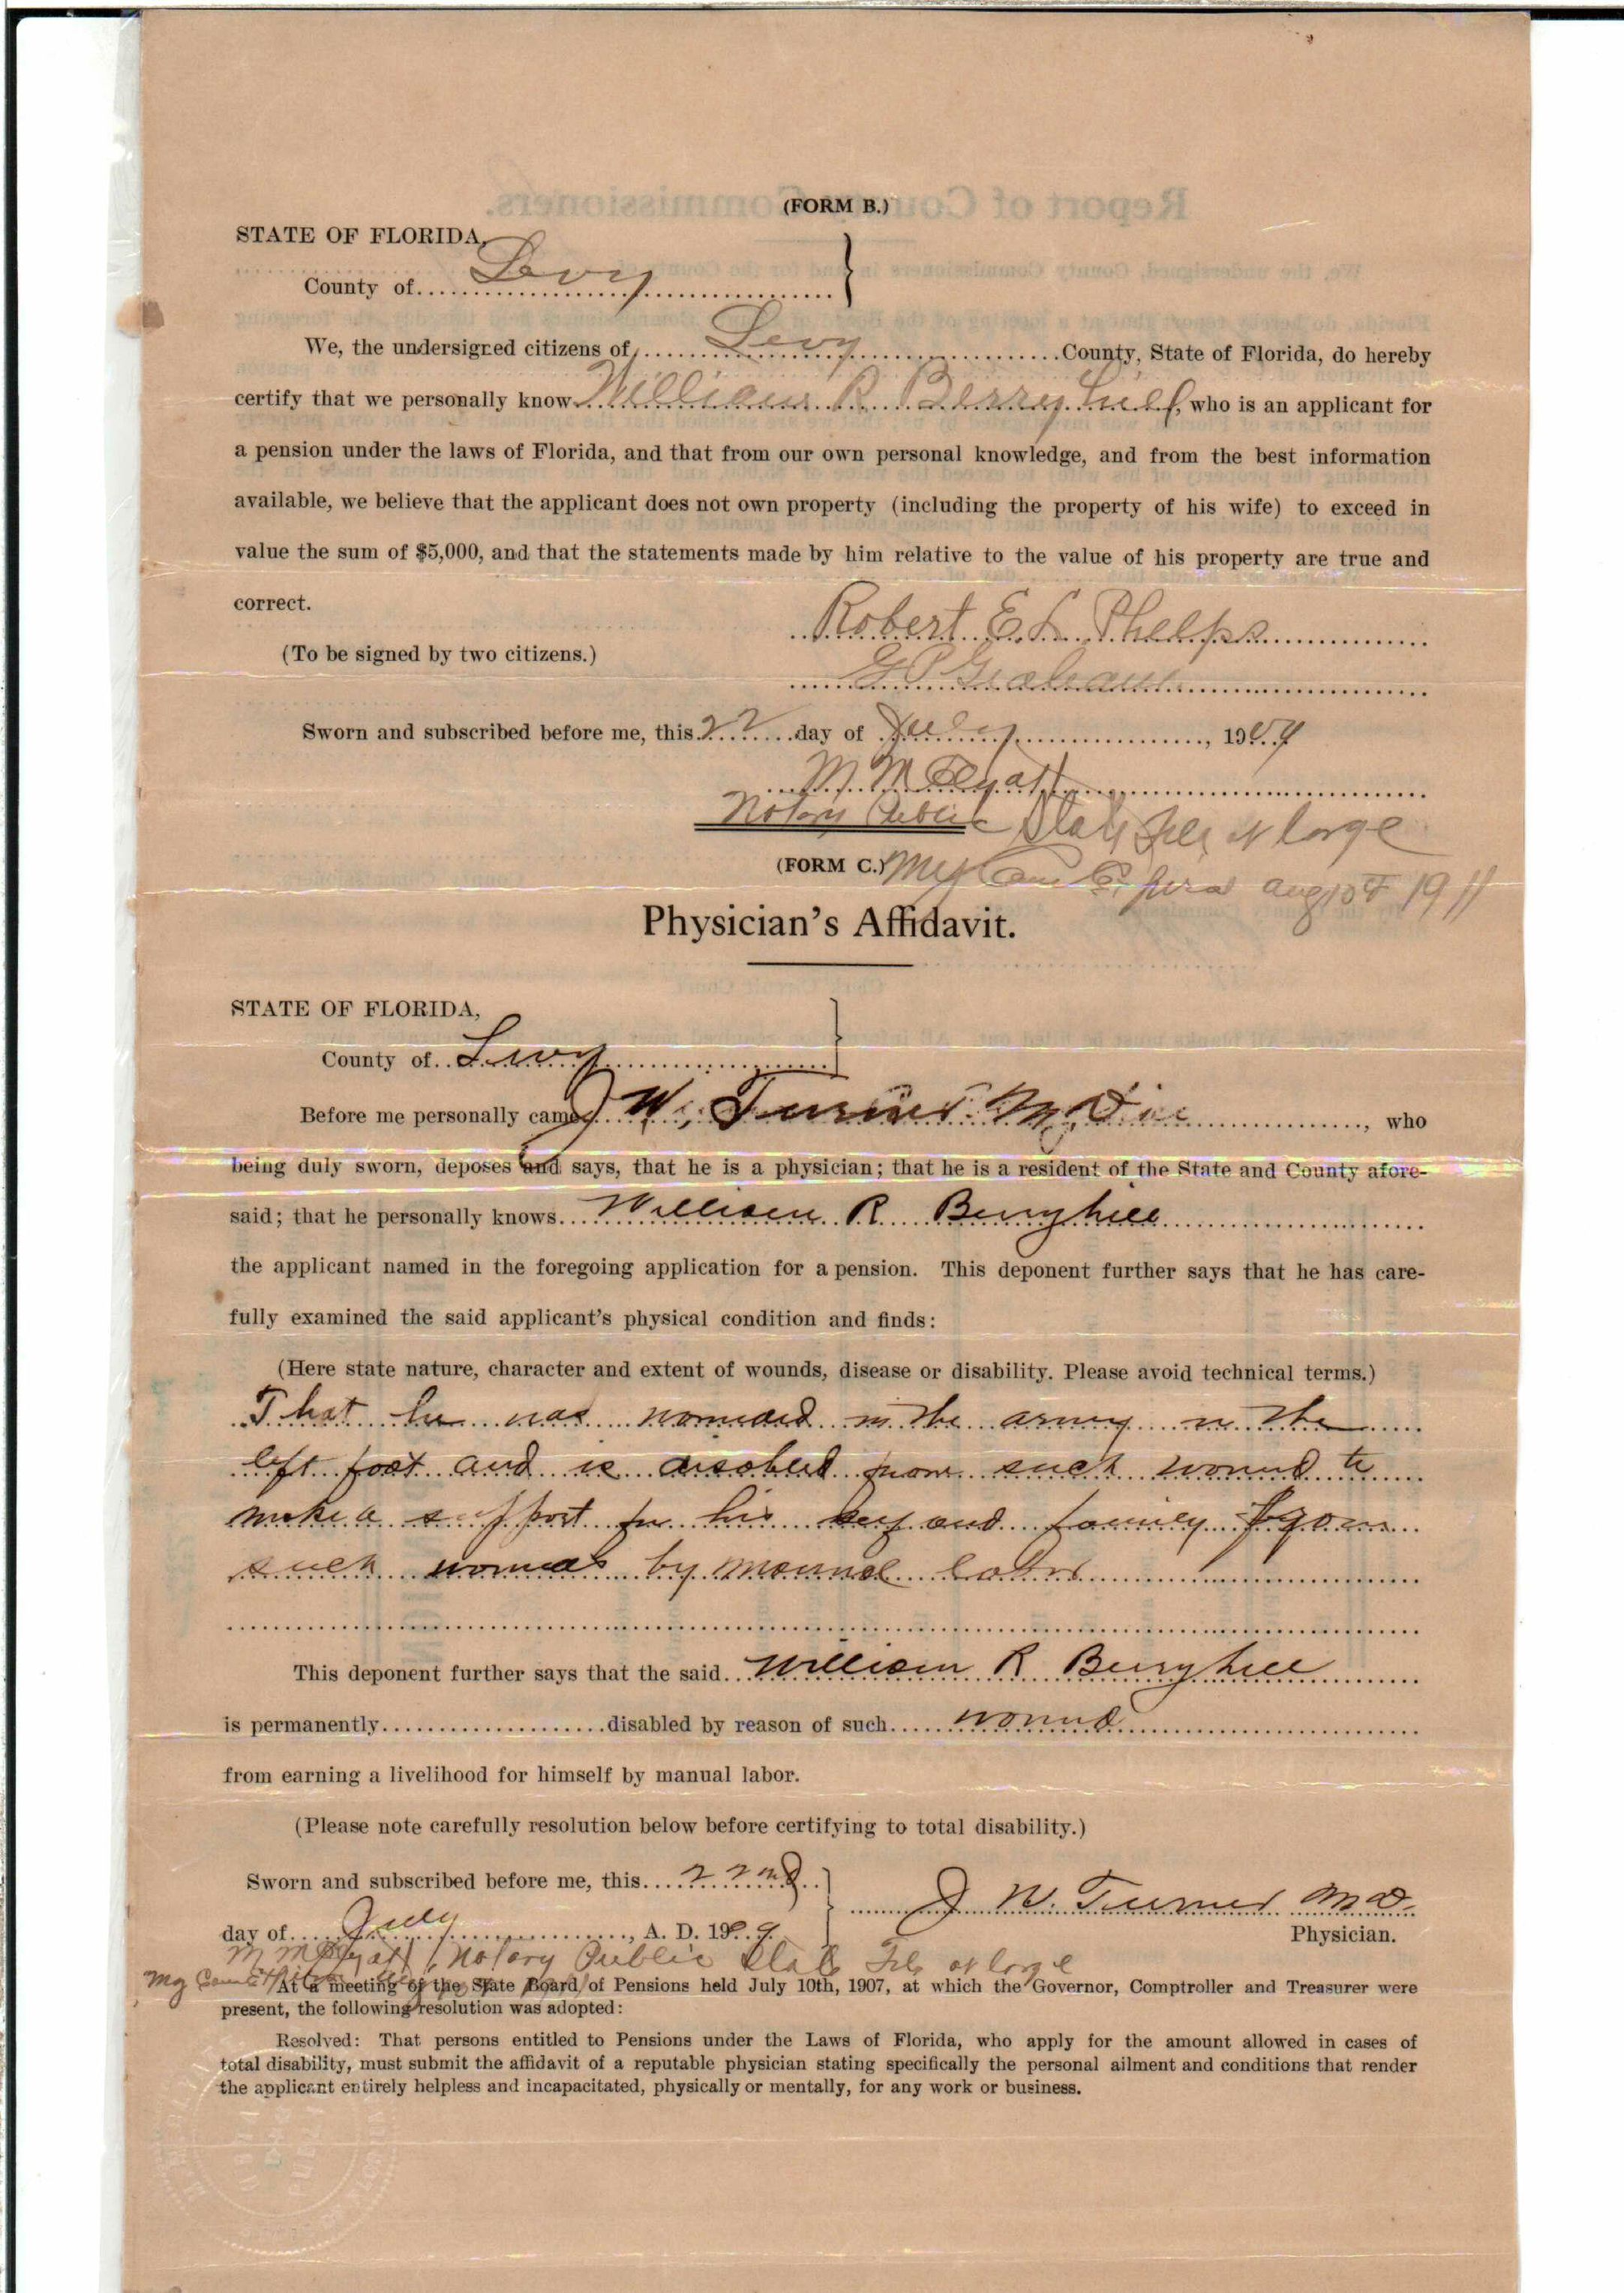 (FORM B.)
STATE OF FLORIDA,
County of Levy
We, the undersigned citizens of Levy County, State of Florida, do hereby
certify that we personally know William R Berryhill, who is an applicant for
a pension under the laws of Florida, and that from our own personal knowledge, and from the best information
available, we believe that the applicant does not own property (including the property of his wife) to exceed in
value the sum of $5,000, and that the statements made by him relative to the value of his property are true and
correct.
Robert E. L. Phelps
(To be signed by two citizens.)
G P Graham
Sworn and subscribed before me, this 22 day of July, 1909
M. M.
Notary Public State Fla at large
(FORM C.) My Com Expires Aug 1911
Physician's Affidavit.
STATE OF FLORIDA,
County of Levy
Before me personally came J W. Turner M.D., who
being duly sworn, deposes and says, that he is a physician; that he is a resident of the State and County afore-
said; that he personally knows William R Berryhill
the applicant named in the foregoing application for a pension. This deponent further says that he has care-
fully examined the said applicant's physical condition and finds:
(Here state nature, character and extent of wounds, disease or disability. Please avoid technical terms.)
That he was wounded in the army in the
left foot and is disabled from such wound to
make a support for his self and family from
such wounds by manual labor
This deponent further says that the said William R Berryhill
is permanently disabled by reason of such wound
from earning a livelihood for himself by manual labor.
(Please note carefully resolution below before certifying to total disability.)
Sworn and subscribed before me, this 22nd
J W. Turner M D.
day of July, A. D. 1909.
Physician.
M M Notary Public State Fla at large
My Com
At a meeting of the State Board of Pensions held July 10th, 1907, at which the Governor, Comptroller and Treasurer were
present, the following resolution was adopted:
Resolved: That persons entitled to Pensions under the Laws of Florida, who apply for the amount allowed in cases of
total disability, must submit the affidavit of a reputable physician stating specifically the personal ailment and conditions that render
the applicant entirely helpless and incapacitated, physically or mentally, for any work or business.